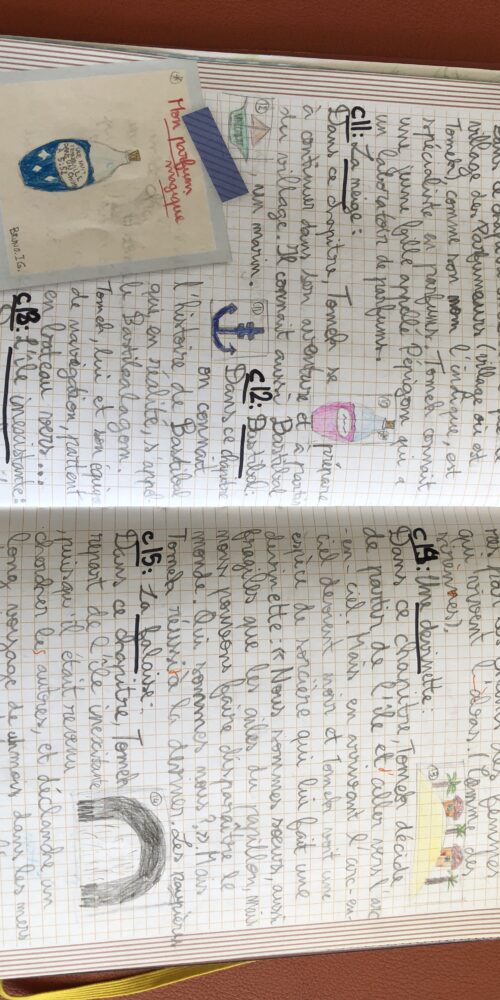 village des Parfumeurs (village où est
Tomek) comme son nom l'indique, est
spécialiste en parfums. Tomek connait
une jeune fille appellé Pépigom qui a
un laboratoire de parfums.
c11: La neige:
Dans ce chapitre, Tomek se prépare
à continuer dans son aventure et à partir
du village. Il connait aussi Bastibal
un marin.
Mon parfum
magique
BRUNO.IG.
c12: Bastibal:
Dans ce chapitre
on connait
l'histoire de Bastibal
que, en réalité, s'appel
le Bastibalagom.
Tomek, lui et son équipe
de navigation, partent
en bateau vers...
c13: L'île inexistante:
qui vivent là-bas. (comme des
sirènes).
c14: Une devinette:
Dans ce chapitre, Tomek décide
de partir de l'île et aller vers l'arc
-en-ciel. Mais en arrivant l'arc-en-
ciel devient noir et Tomek voit une
espèce de sorcière qui lui fait une
devinette: «Nous sommes sœurs, aussi
fragiles que les ailes du papillon, mais
nous pouvons faire disparaître le
monde. Qui sommes nous?» Mais
Tomek réussi à la deviner. Les paupières
c15: La falaise:
Dans ce chapitre, Tomek
repart de l'île inexistante
puisqu'il était revenu
chercher les autres, et déclanche un
long voyage de un mois dans les mers